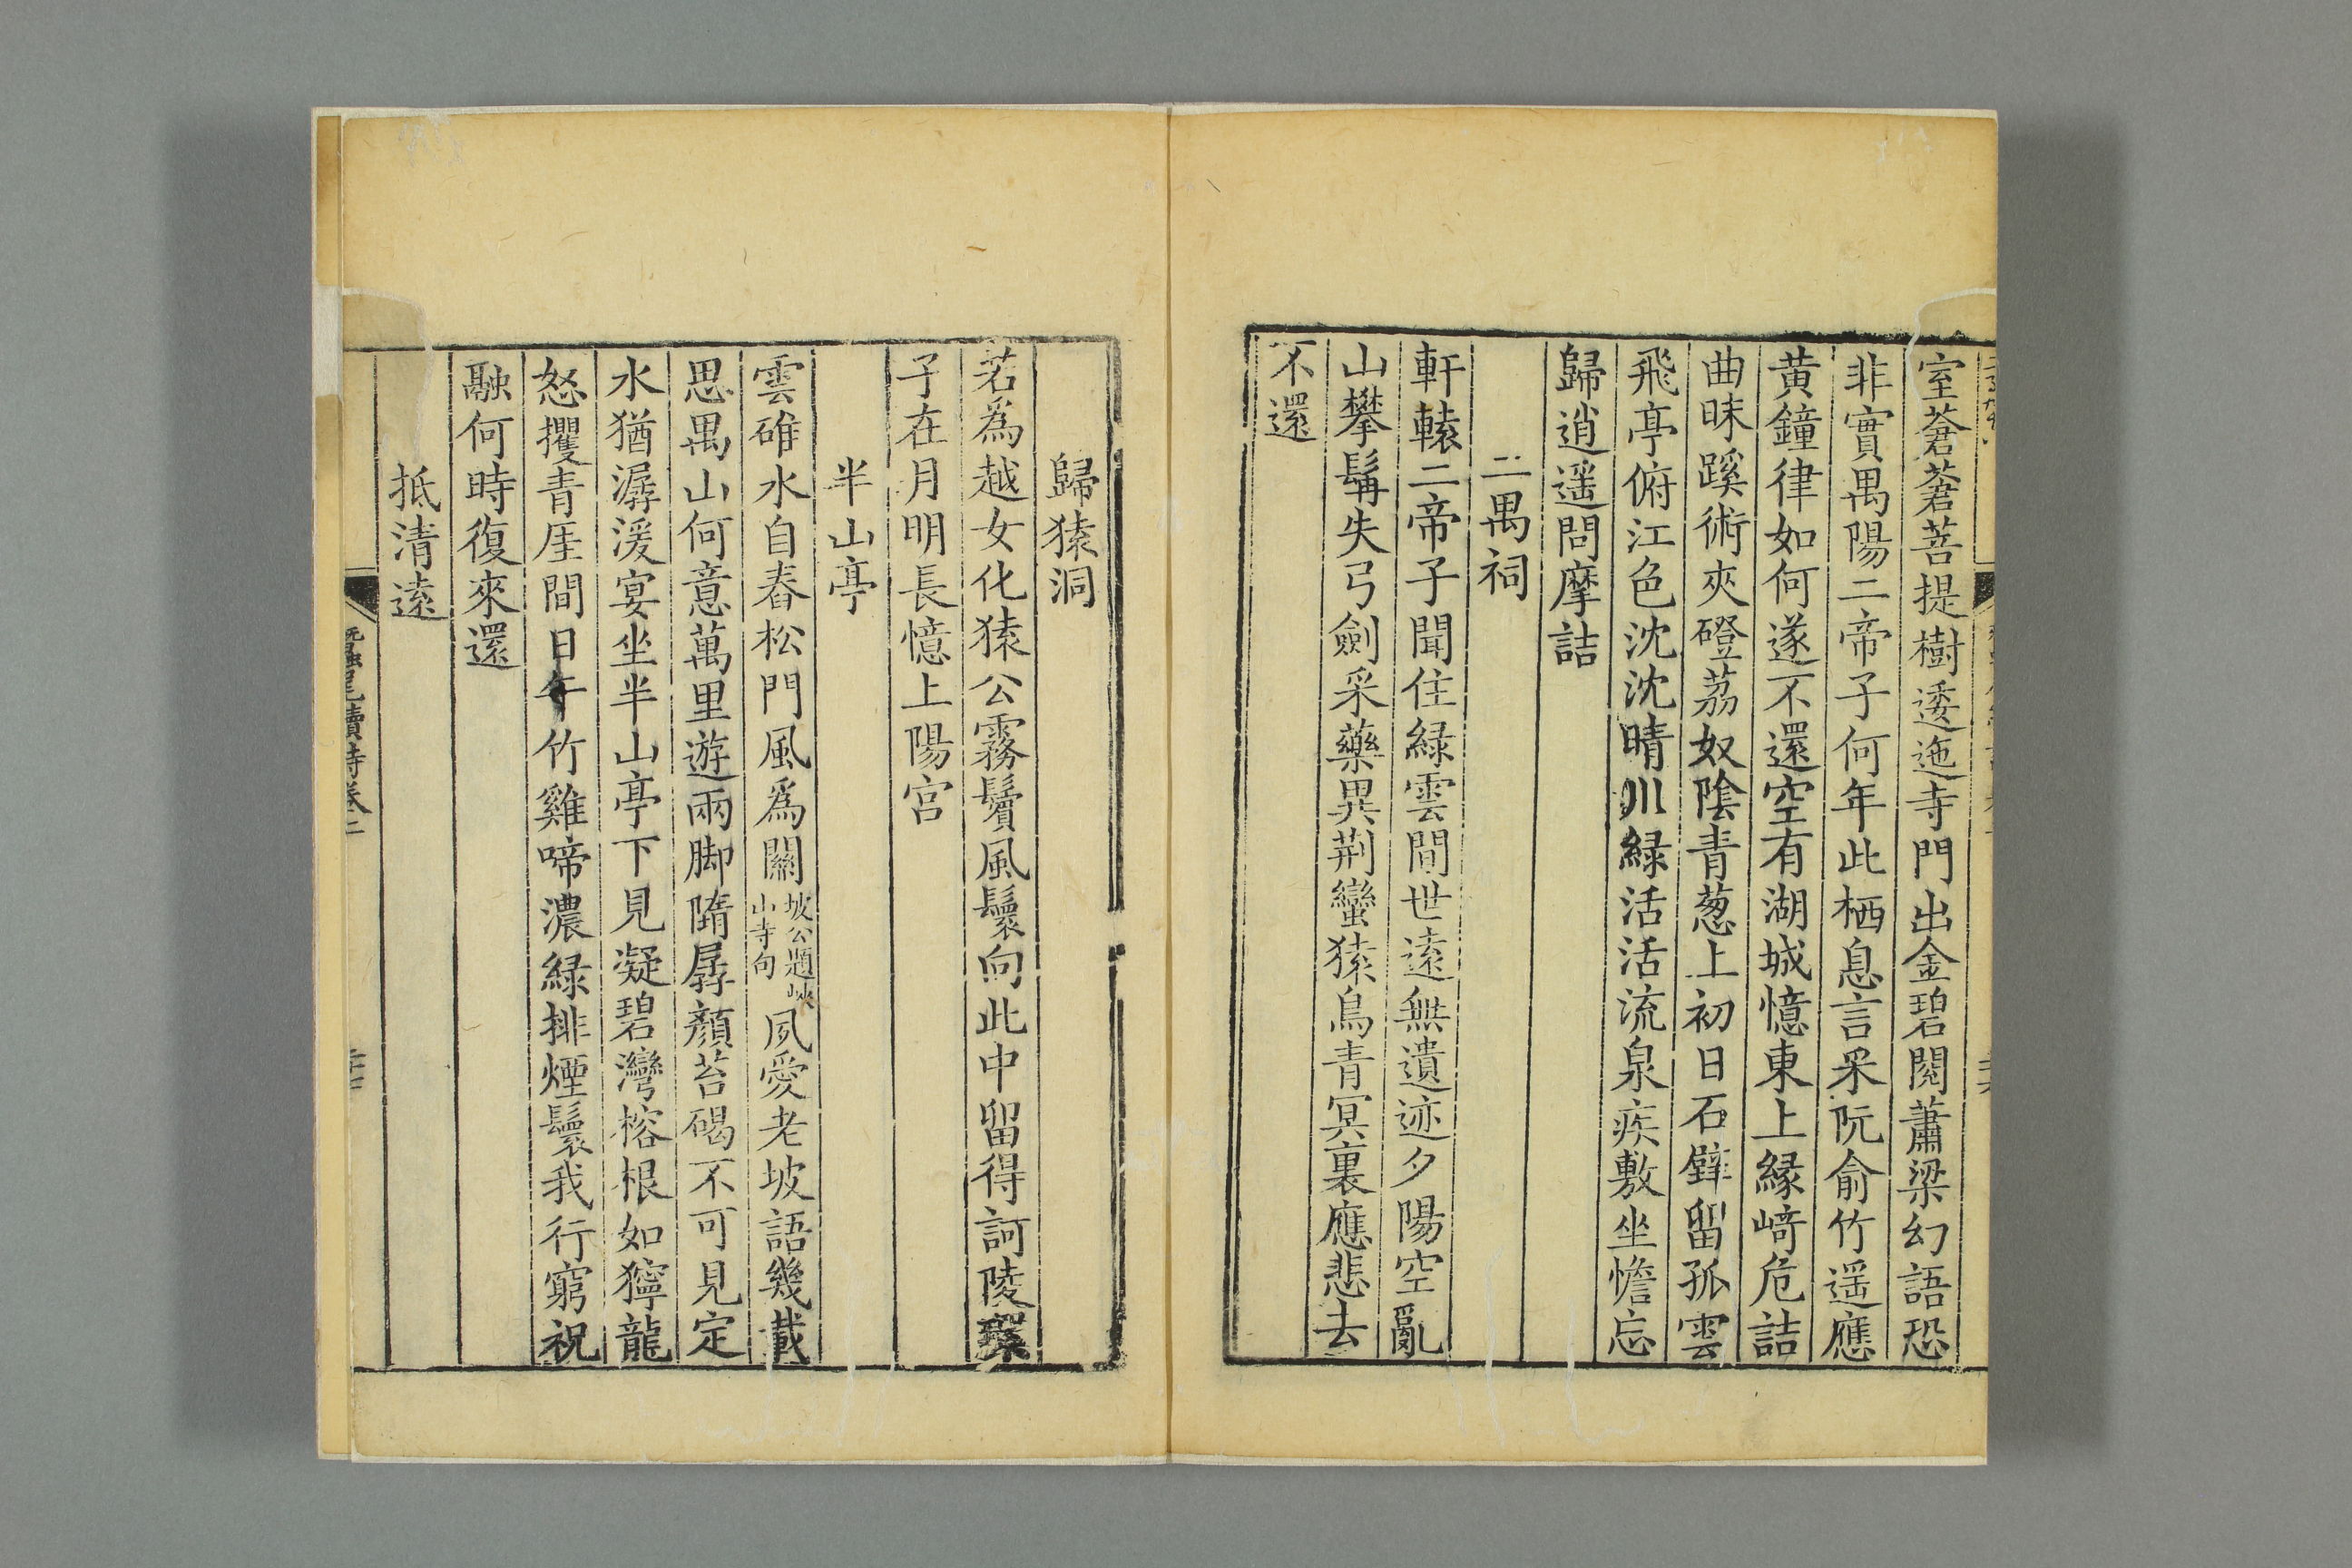 室蒼蒼菩提樹逶迤寺門出金碧閱蕭梁幻語恐
非實禺陽二帝子何年此栖息言采阮俞竹遥應
黄鐘律如何遂不還空有湖城憶東上緣崎危詰
曲昧蹊術夾磴荔奴陰青葱上初日石壁留孤雲
飛亭俯江色沈沈晴川綠活活流泉疾敷坐憺忘
歸逍遥問摩詰
二禺祠
軒轅二帝子聞住綠雲間世遠無遺迹夕陽空亂
山攀髯失弓劒采藥異荆蠻猿鳥青冥裏應悲去
不還
歸猿洞
若爲越女化猿公霧鬢風鬟向此中留得訶陵環
子在月明長憶上陽宮
半山亭
雲碓水自舂松門風爲關坡公題峽山寺句夙愛老坡語幾載
思禺山何意萬里遊兩脚隋孱顏苔碣不可見定
水猶潺湲宴坐半山亭下見凝碧灣榕根如獰龍
怒攫青厓間日午竹雞啼濃綠排煙鬟我行窮祝
融何時復來還
抵清遠
蠶尾續詩卷二